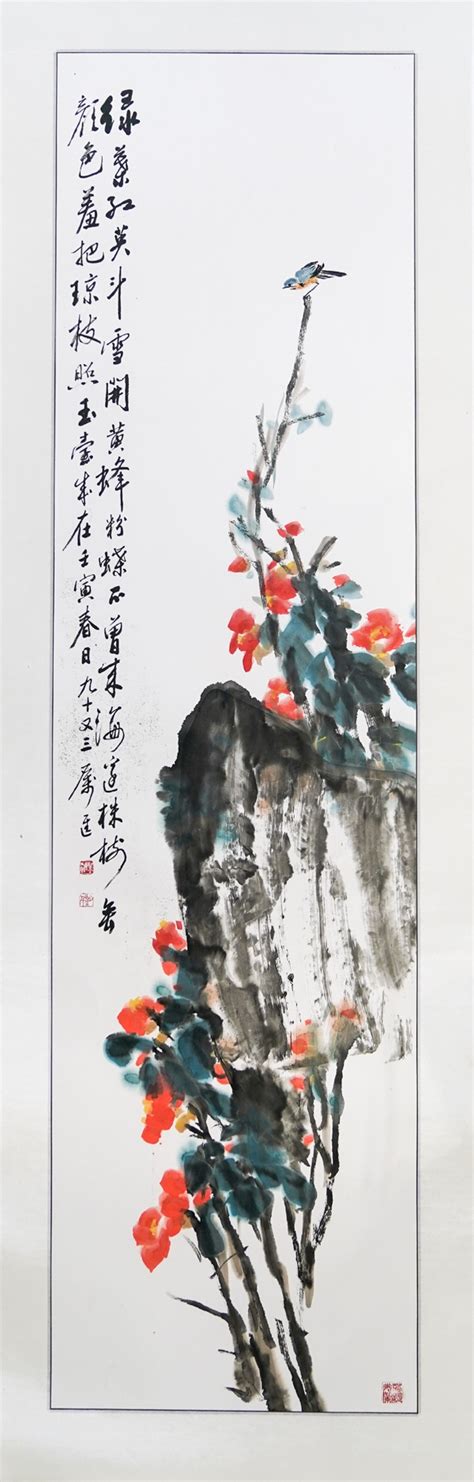 绿葉红英斗雪開黄蜂粉蝶不曾来海边株树无
颜色羞把琼枝照玉臺岁在壬寅春日九十又三